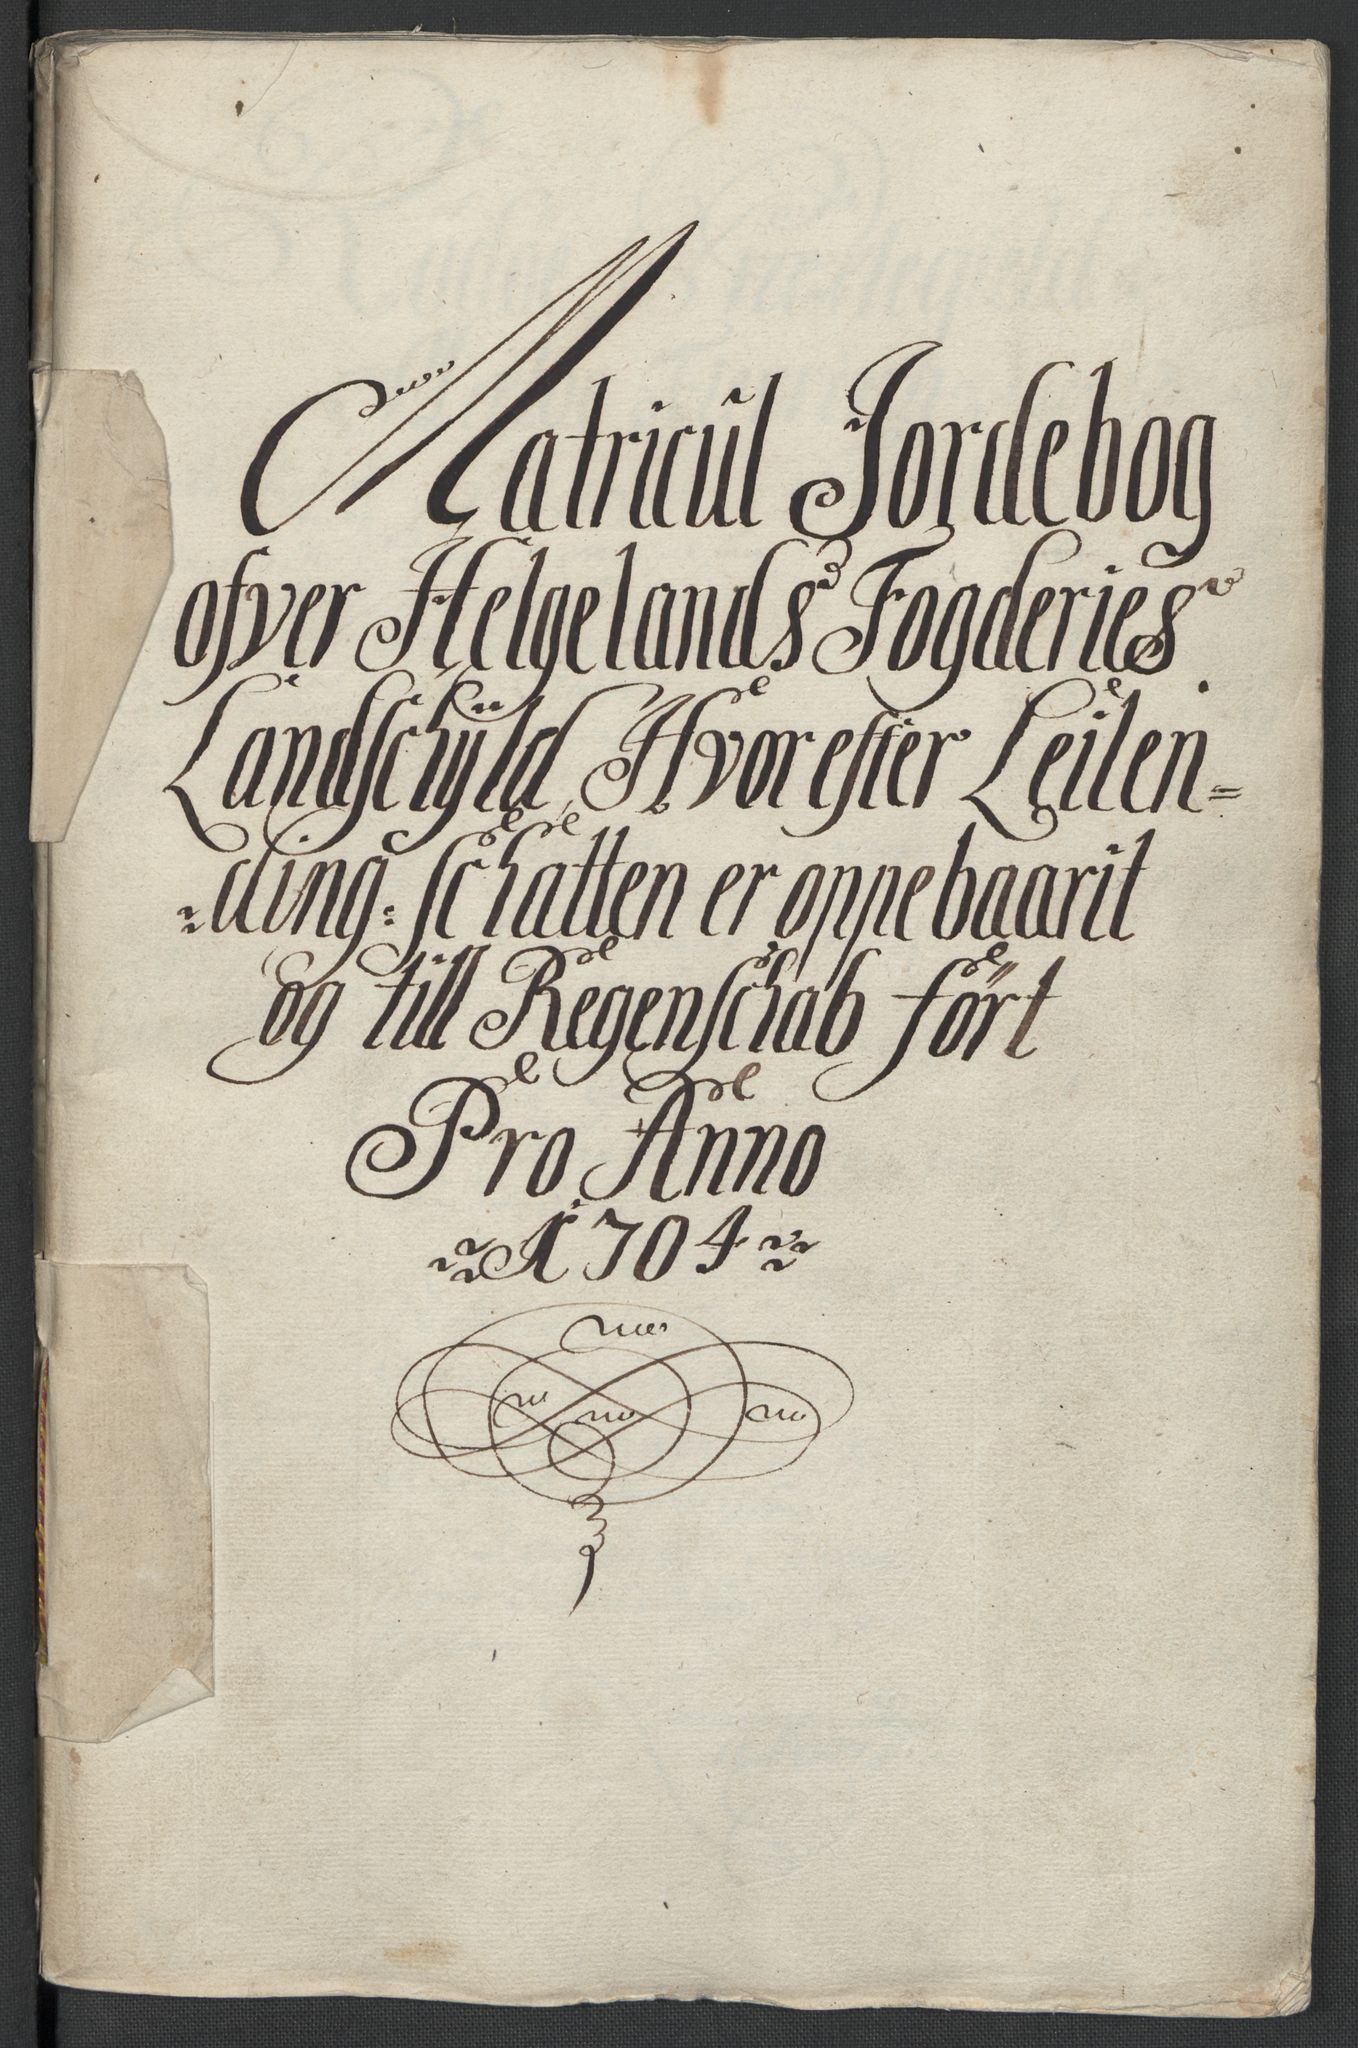 Matricul Jordebog
ofver Helgelands Fogderies
Landschÿld, Hvorefter Leilen=
ding: schatten er oppebaarit
og till Regenschab fört
Pro Anno
1704